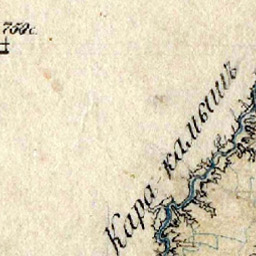 750 с.
Кара камышъ